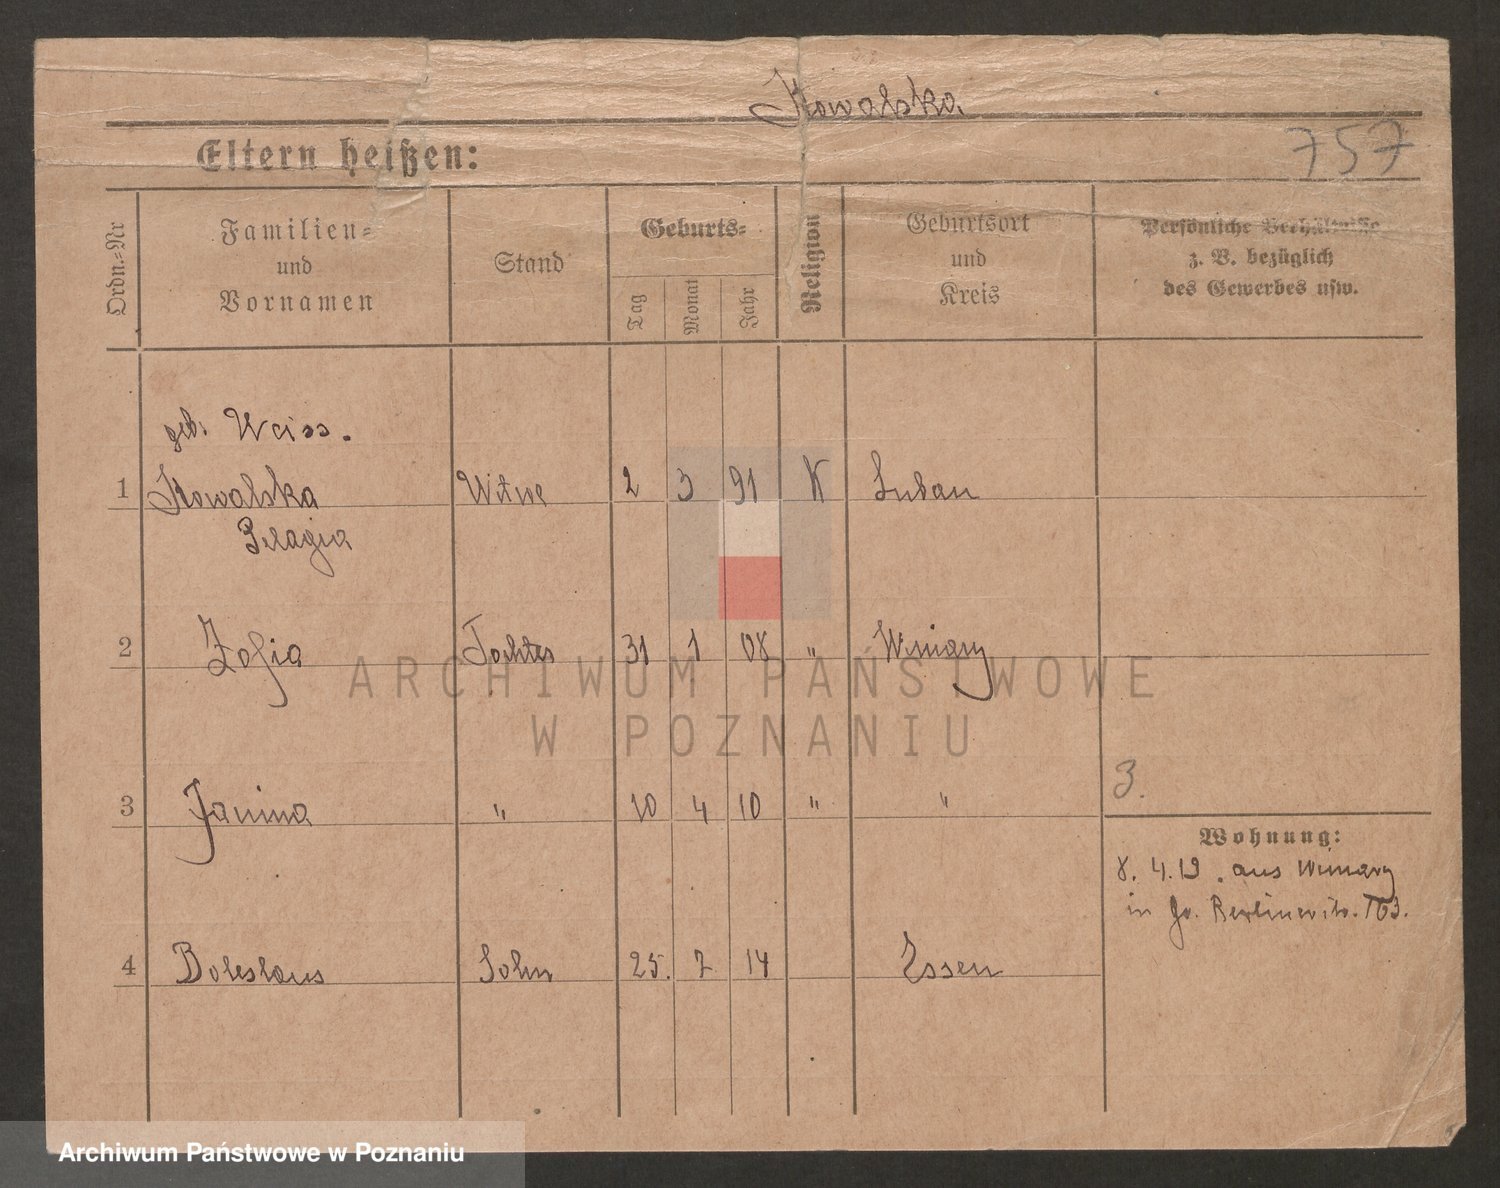 Kowalska
757
Eltern heißen:
Ordn.-Nr
Familien-
und
Vornamen
Stand
Geburts-
Tag
Monat
Jahr
Religion
Geburtsort
und
Kreis
Persönliche Verhältnisse
z. B. bezüglich
des Gewerbes usw.
geb. Weiss.
1 Kowalska Witwe 2 3 91 K Luban
Pelagia
2 Zofia Tochter 31 1 08 " Winiary
3 Janina " 10 4 10 " "
3.
Wohnung:
8. 4. 19. aus Winiary
in Gr. Berlinerstr.
4 Boleslaus Sohn 25. 7 14 Essen
ARCHIWUM PAŃSTWOWE
W POZNANIU
Archiwum Państwowe w Poznaniu